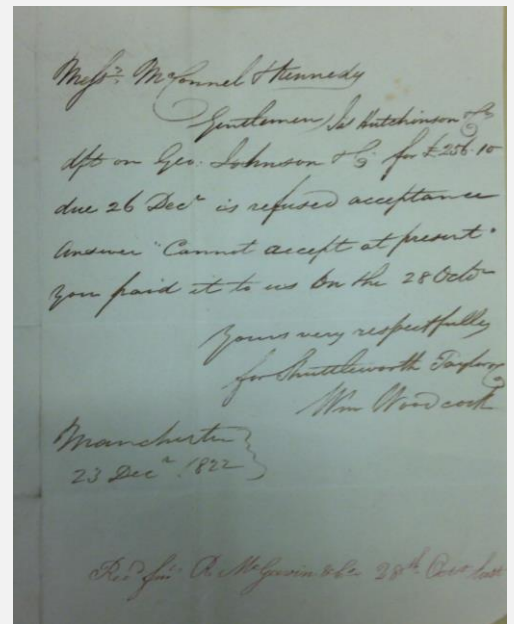 Messrs. McConnel & Kennedy
Gentlemen, Jas Hutchinson & Co
dft on Geo. Johnson & Co for £256.10
due 26 Decr is refused acceptance
Answer "Cannot accept at present"
You paid it to us on the 28 Octr
Yours very respectfully
for Shuttleworth Taylor & Co
Wm Woodcock
Manchester
23 Decr 1822
Recd from R. McGavin & Co 28th Octr last